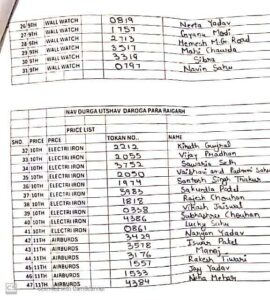 26 9TH WALL WATCH 0819 Neeta Yadav
27 9TH WALL WATCH 1757 Gyanu Modi
28 9TH WALL WATCH 2713 Hemesh M.G Road
29 9TH WALL WATCH 3517 Mahi Chawda
30 9TH WALL WATCH 3319 Sibra
31 9TH WALL WATCH 0797 Navin Sahu
NAV DURGA UTSHAV DAROGA PARA RAIGARH
PRICE LIST
SNO. PRICE PRICE TOKAN NO.. NAME
32 10TH ELECTRI IRON 2212 Kinath Gujhal
33 10TH ELECTRI IRON 2055 Vijay Pradhan
34 10TH ELECTRI IRON 3752 Sawaria Seth
35 10TH ELECTRI IRON 2050 Vaibhavi and Padmni Sahu
36 10TH ELECTRI IRON 1974 Santosh Singh Thakur
37 10TH ELECTRI IRON 5985 Sakunda Patel
38 10TH ELECTRI IRON 1818 Rajesh Chouhan
39 10TH ELECTRI IRON 0358 Vikash Jaiswal
40 10TH ELECTRI IRON 4386 Subhashree Chouhan
41 10TH ELECTRI IRON 0861 Lucky Sahu
42 11TH AIRBURDS 3429 Narayan Yadav
43 11TH AIRBURDS 3578 Iswar Patel
44 11TH AIRBURDS 3176 Manoj
45 11TH AIRBURDS 1557 Rakesh Tiwari
46 11TH AIRBURDS 1533 Jay Yadav
47 11TH AIRBURDS 4384 Neha Mehar
Scanned with CamScanner